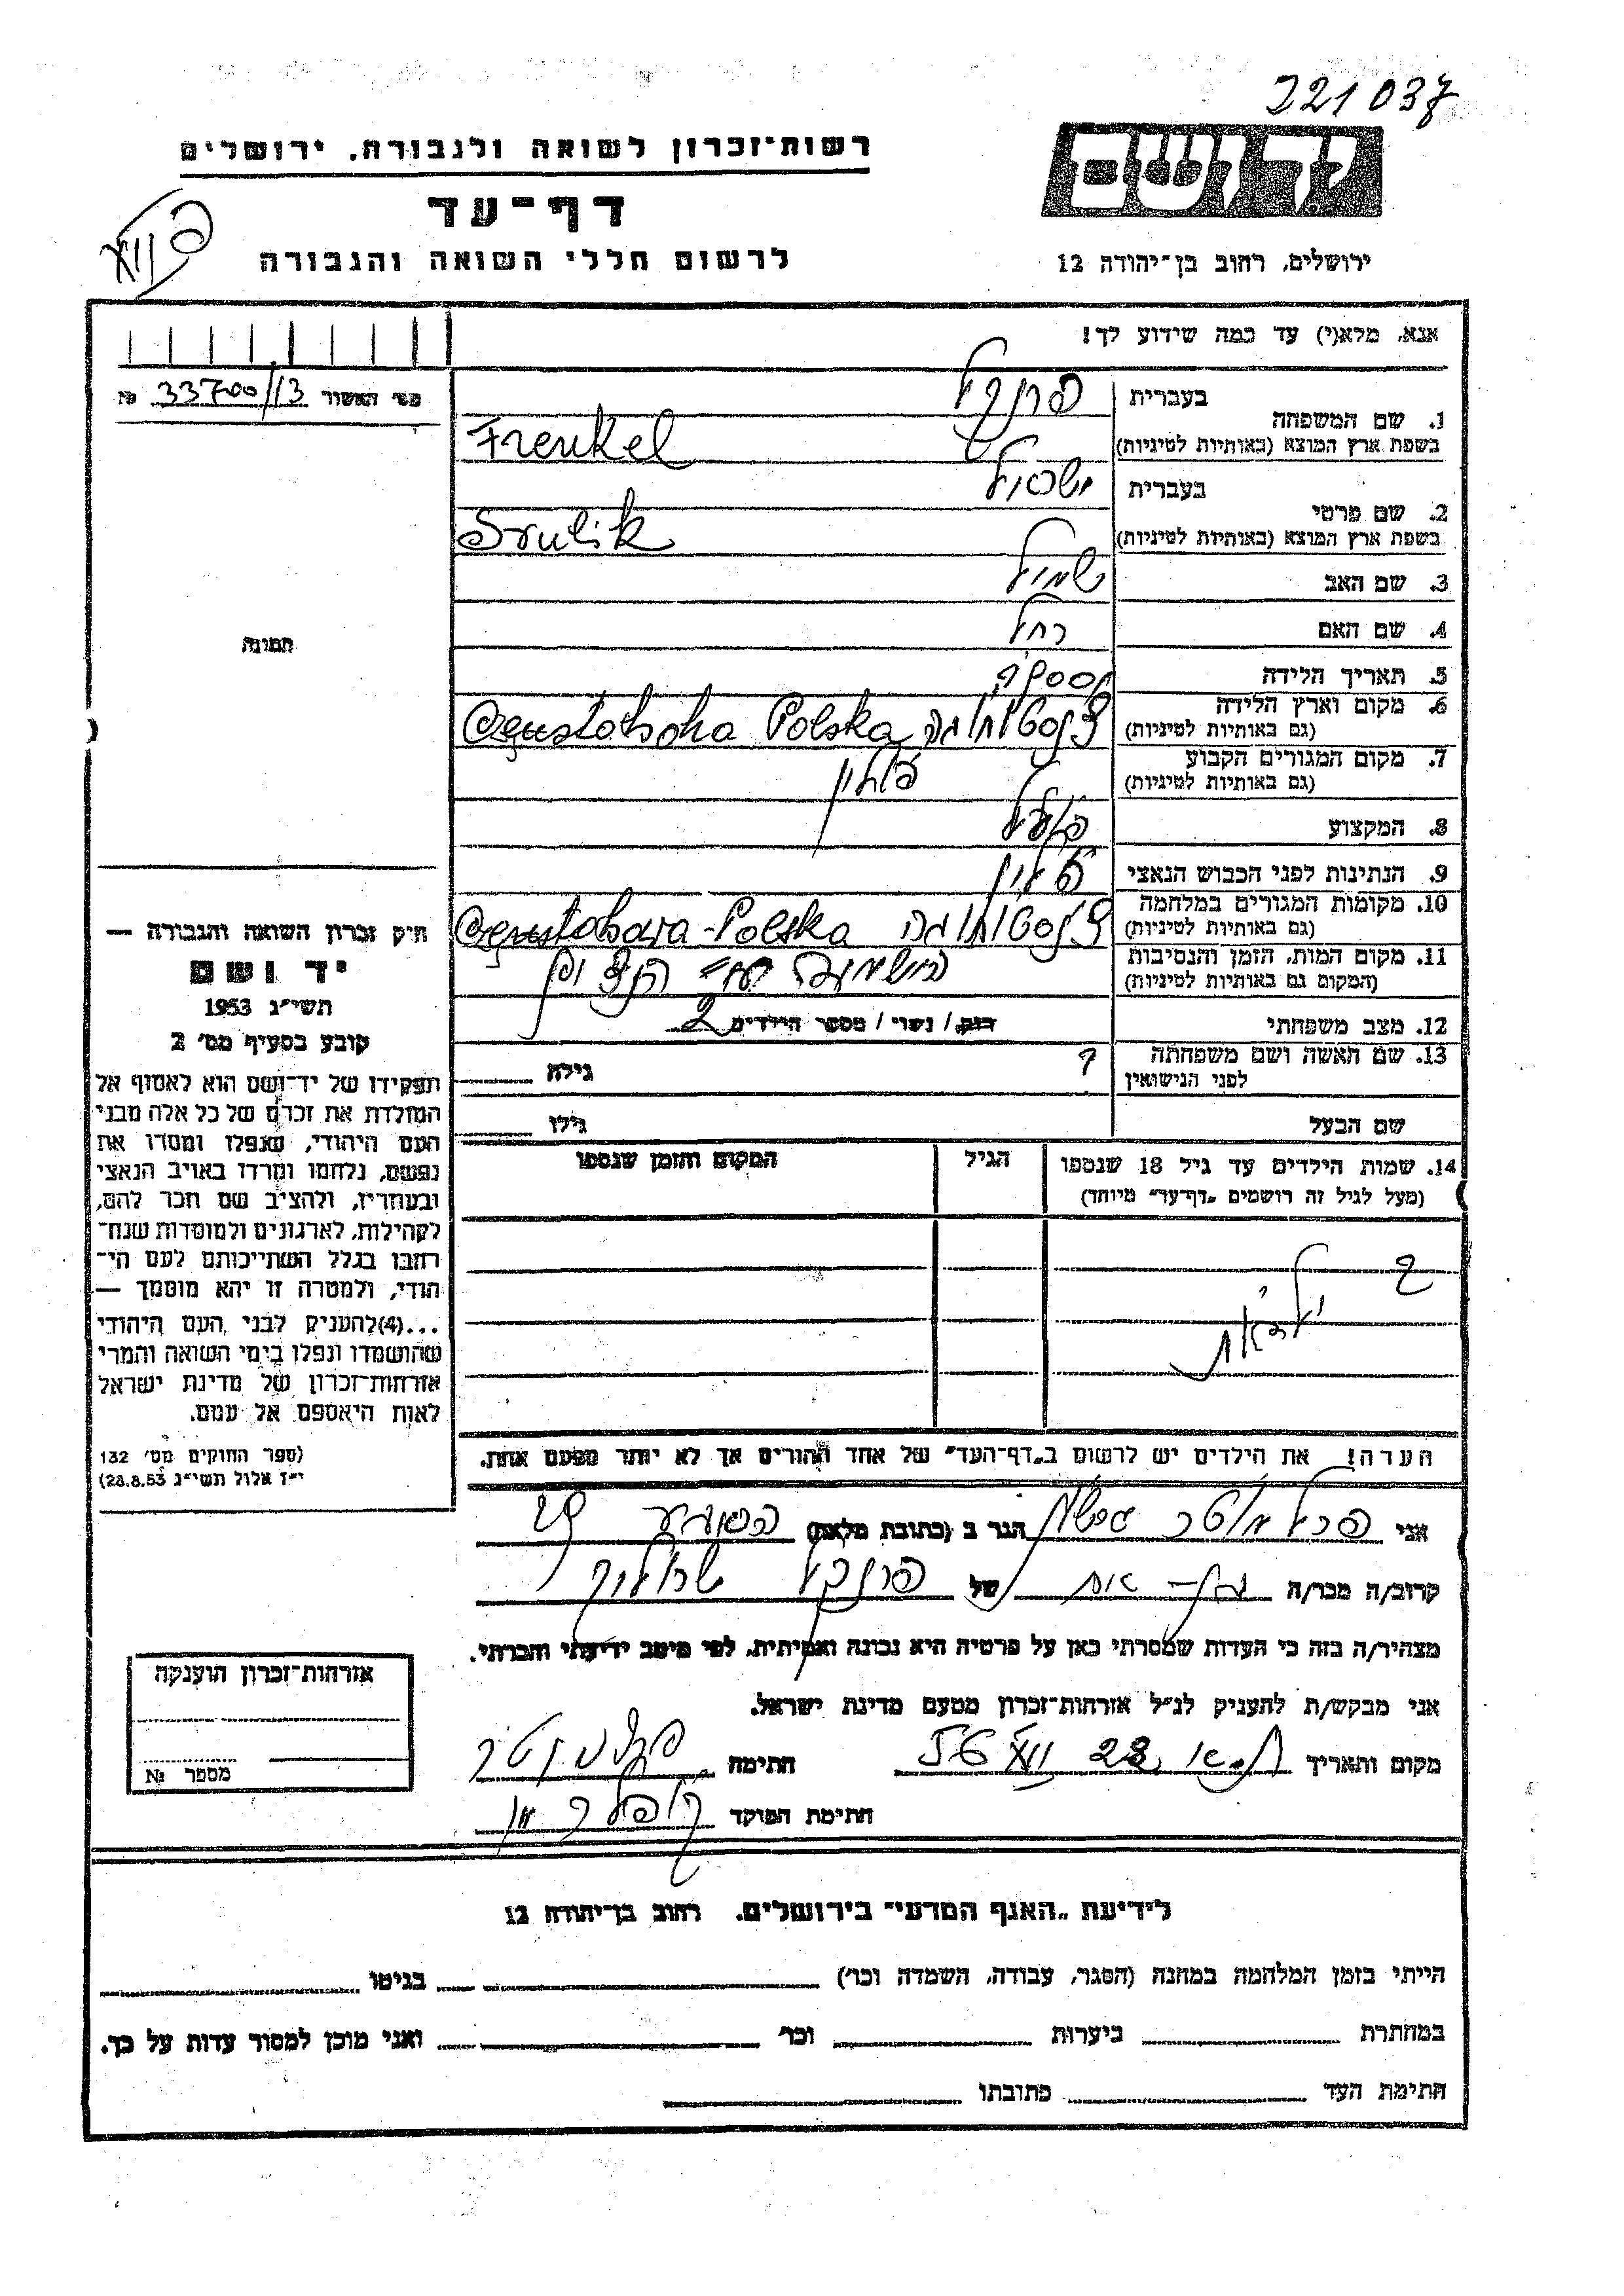 221037
רשות־זכרון לשואה ולגבורה, ירושלים
יד ושם
דף־עד
לרשום חללי השואה והגבורה
ירושלים, רחוב בן־יהודה 12
אנא, מלא(י) עד כמה שידוע לך!
מס׳ האשור 33700/13 №
1. שם המשפחה בעברית פרנקל
בשפת ארץ המוצא (באותיות לטיניות) Frenkel
2. שם פרטי בעברית ישראל
בשפת ארץ המוצא (באותיות לטיניות) Srulik
3. שם האב שמואל
4. שם האם רחל
תמונה
5. תאריך הלידה
6. מקום וארץ הלידה צ'נסטוחובה Częustohoha Polska
(גם באותיות לטיניות)
7. מקום המגורים הקבוע פולין
(גם באותיות לטיניות)
8. המקצוע פועל
9. הנתינות לפני הכבוש הנאצי פולין
10. מקומות המגורים במלחמה צ'נסטוחובה Częustohowa-Polska
(גם באותיות לטיניות)
11. מקום המות, הזמן והנסיבות
(המקום גם באותיות לטיניות)
12. מצב משפחתי רווק / נשוי / מספר הילדים 2
13. שם האשה ושם משפחתה ? גילה
לפני הנישואין
שם הבעל גילו
14. שמות הילדים עד גיל 18 שנספו הגיל המקום והזמן שנספו
(מעל לגיל זה רושמים „דף־עד״ מיוחד)
2
ילדות
חוק זכרון השואה והגבורה —
יד ושם
תשי״ג 1953
קובע בסעיף מס׳ 2
תפקידו של יד־ושם הוא לאסוף אל
המולדת את זכרם של כל אלה מבני
העם היהודי, שנפלו ומסרו את
נפשם, נלחמו ומרדו באויב הנאצי
ובעוזריו, ולהציב שם וזכר להם,
לקהילות, לארגונים ולמוסדות שנח־
רבו בגלל השתייכותם לעם הי־
הודי, ולמטרה זו יהא מוסמך —
...(4) להעניק לבני העם היהודי
שהושמדו ונפלו בימי השואה והמרי
אזרחות־זכרון של מדינת ישראל
לאות היאספם אל עמם.
(ספר החוקים מס׳ 132
י״ז אלול תשי״ג 28.8.53)
הערה! את הילדים יש לרשום ב„דף־העד״ של אחד ההורים אך לא יותר מפעם אחת.
אני פרלמוטר הגר ב (כתובת מלאה)
קרוב/ה מכר/ה של פרנקל שרוליק
מצהיר/ה בזה כי העדות שמסרתי כאן על פרטיה היא נכונה ואמיתית, לפי מיטב ידיעתי והכרתי.
אני מבקש/ת להעניק לנ״ל אזרחות־זכרון מטעם מדינת ישראל.
מקום ותאריך חתימה פרלמוטר
חתימת הפוקד
אזרחות־זכרון הוענקה
מספר №
לידיעת „האגף המדעי״ בירושלים, רחוב בן־יהודה 12
הייתי בזמן המלחמה במחנה (הסגר, עבודה, השמדה וכו׳) בגיטו
במחתרת ביערות וכו׳ ואני מוכן למסור עדות על כך.
חתימת העד כתובתו